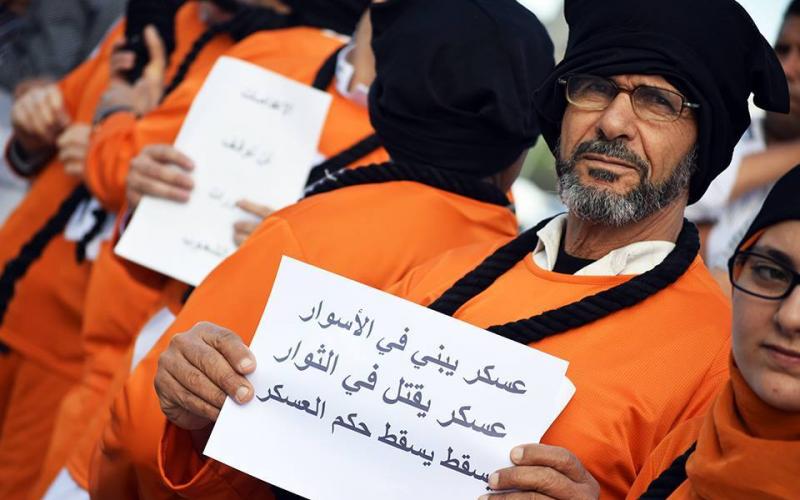 الإعدامات
لن توقف
ثورات
الشعوب
عسكر يبني في الأسوار
عسكر يقتل في الثوار
يسقط يسقط حكم العسكر